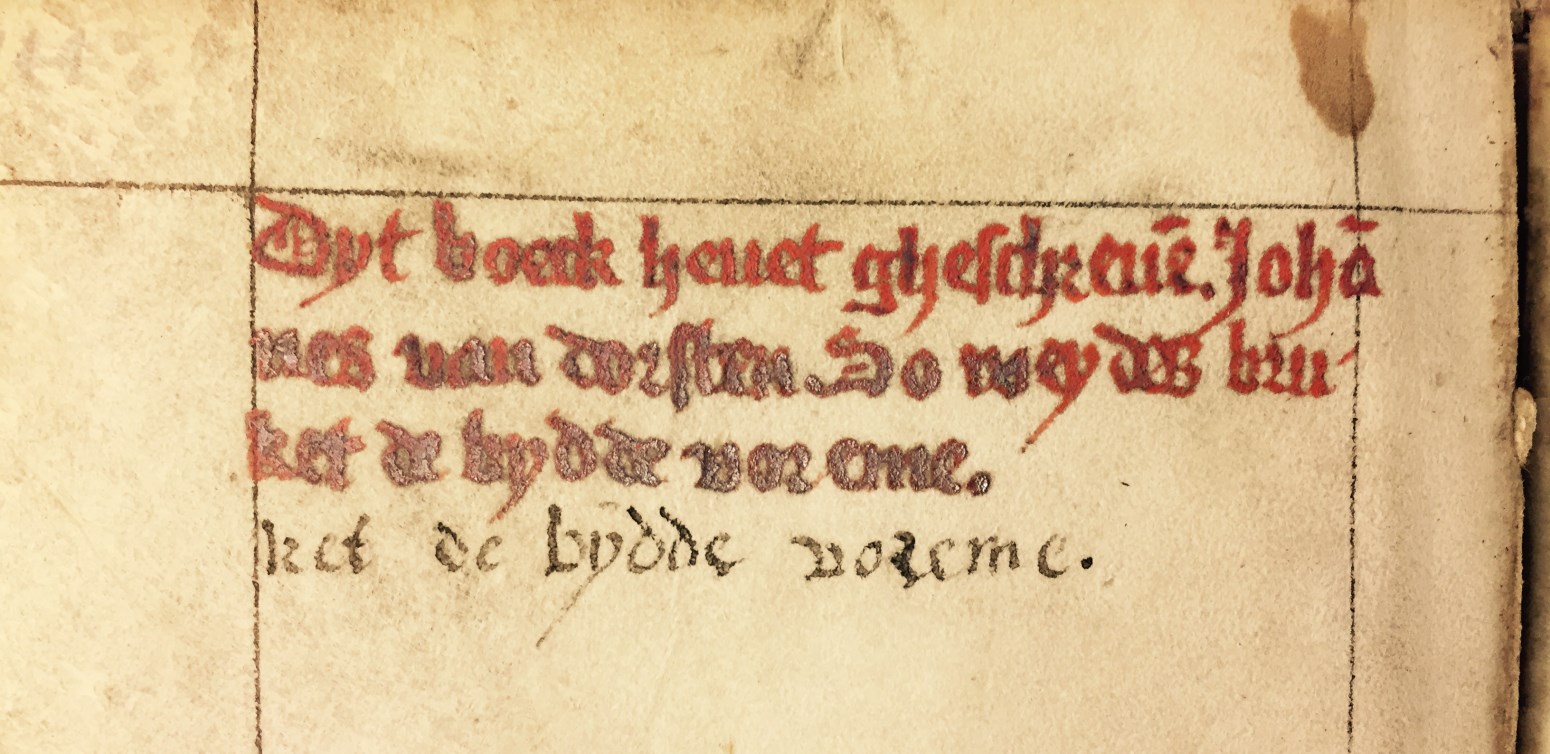 Dyt boeck heuet ghescreuē. Johā
nes van dorsten. So wey des bru
ket de bydde vor eme.
ket de bydde vor eme.